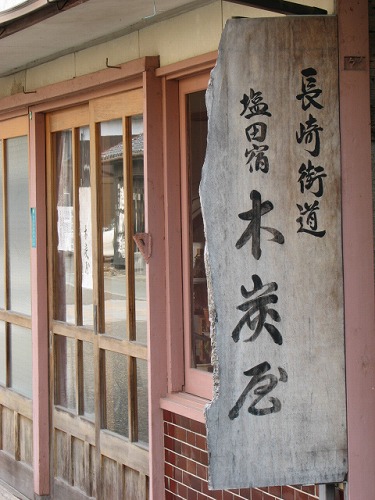 長崎街道
塩田宿
木炭屋